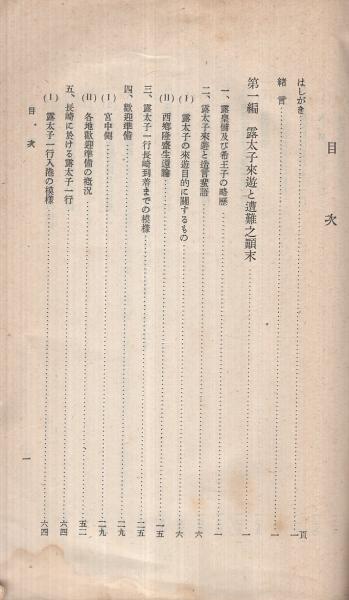 目次
はしがき…一頁
緒言…一
第一編 露太子來遊と遭難之顚末…一
一、露皇儲及び希王子の略歷…一
二、露太子來遊と造言蜚語…六
(I) 露太子の來遊目的に關するもの…六
(II) 西鄕隆盛生還論…一五
三、露太子一行長崎到着までの模樣…二五
四、歡迎準備…二九
(I) 宮中側…二九
(II) 各地歡迎準備の槪況…五二
五、長崎に於ける露太子一行…六四
(I) 露太子一行入港の模樣…六四
目次
一